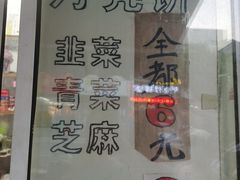 韭菜
青菜
芝麻
全都6元